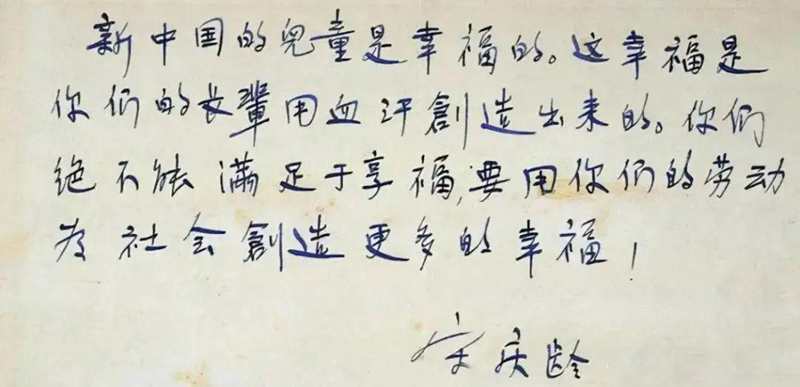 新中国的兒童是幸福的。这幸福是
你们的长輩用血汗創造出来的。你们
绝不能满足于享福，要用你们的劳动
为社会創造更多的幸福！
宋庆龄